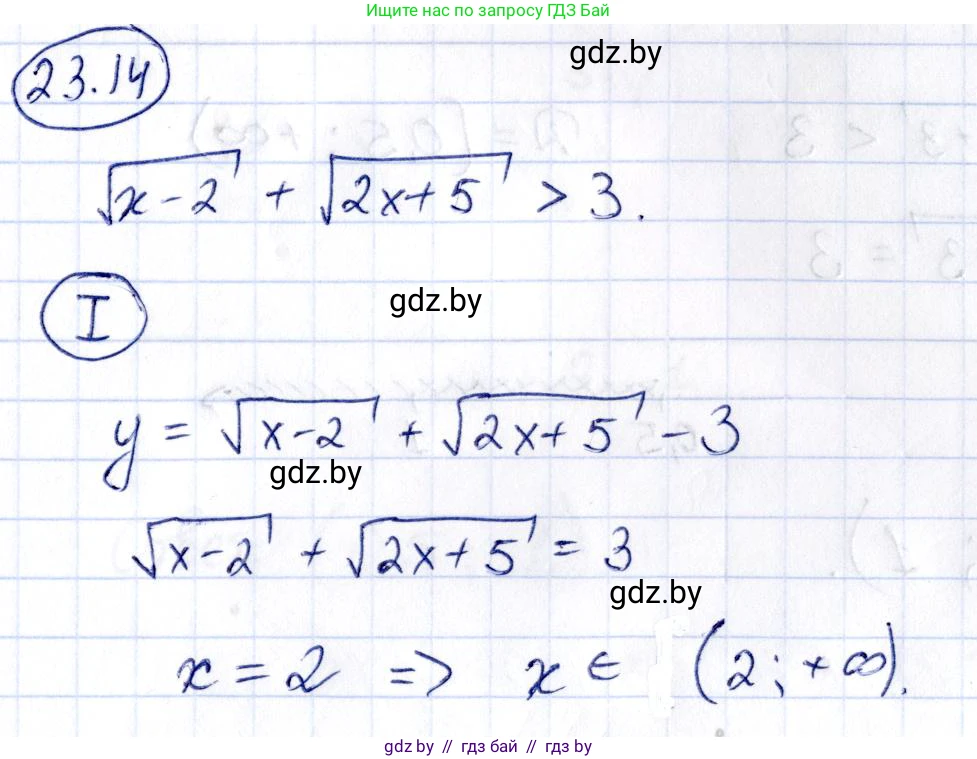 Ищите нас по запросу ГДЗ Бай
gdz.by
23.14
√(x-2) + √(2x+5) > 3.
I
gdz.by
y = √(x-2) + √(2x+5) - 3
gdz.by
√(x-2) + √(2x+5) = 3
gdz.by
x = 2 => x ∈ (2; +∞).
gdz.by // гдз бай // гдз.by